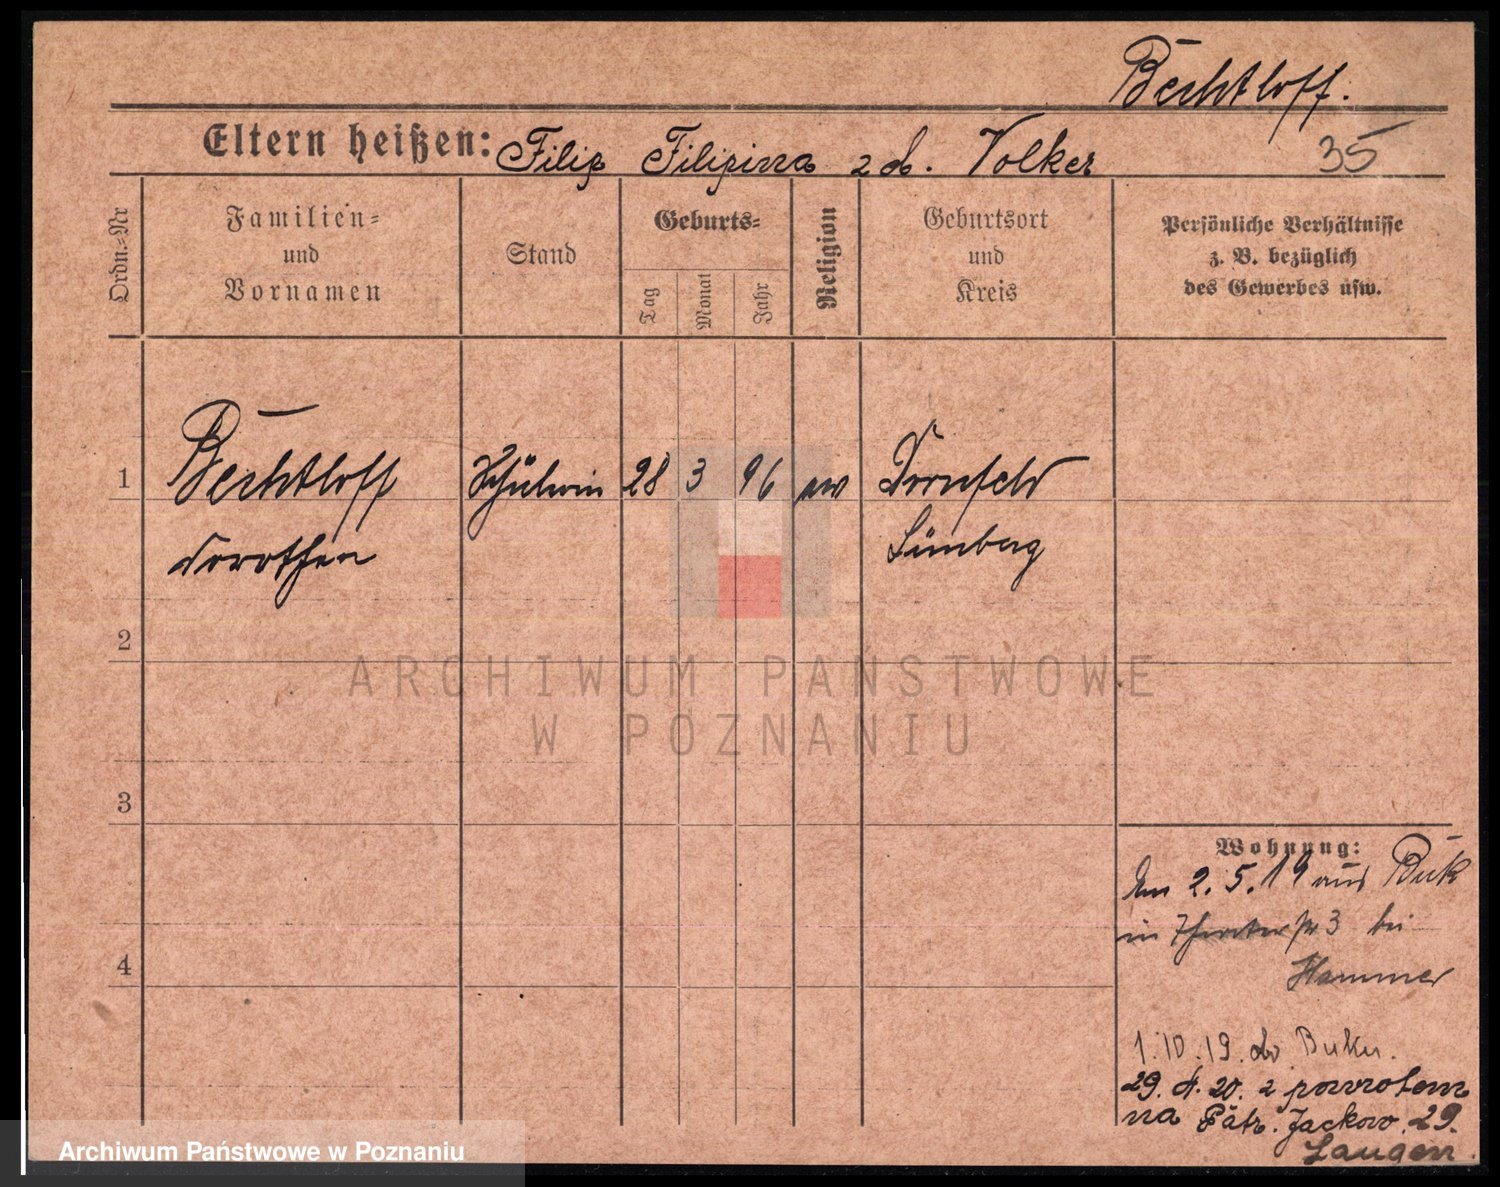 Bechtloff.
Eltern heißen: Filip Filipina z d. Volker
35
Ordn.=Nr
Familien=
und
Vornamen
Stand
Geburts=
Tag
Monat
Jahr
Religion
Geburtsort
und
Kreis
Persönliche Verhältnisse
z. B. bezüglich
des Gewerbes usw.
1
Bechtloff Schülerin 28 3 96 ev Dornfeld
Dorothea Lemberg
2
ARCHIWUM PAŃSTWOWE
W POZNANIU
3
4
Wohnung:
Am 2.5.19 aus Buk
in str 3 bei
Hammer
1.10.19. do Buku.
29. 4. 20. z powrotem
na Patr. Jackow. 29.
Langen.
Archiwum Państwowe w Poznaniu